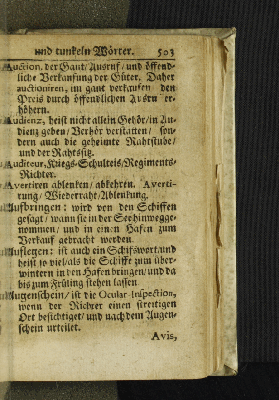 und tunkeln Wörter. 503
Auction, der Gant/ Ausruf/ und öffend-
liche Verkauffung der Güter. Daher
auctioniren, im gant verkauffen den
Preis durch öffendlichen Ausru er-
höhern.
Audienz, heist nicht allein Gehör/in Au-
dienz geben/ Verhör verstatten/ son-
dern auch die geheimte Rahtstube/
und der Rahtssitz.
Auditeur, Kriegs-Schulteis/Regiments-
Richter.
Avertiren ablenken/ abkehren. Averti-
rung/ Ablenkung.
Auffbringen: wird von den Schiffen
gesagt/ wann sie in der See hinwegge-
nommen/ und in einen Hafen zum
Verkauf gebracht werden.
Auflegen: ist auch ein Schifswort und
heist so viel/als die Schiffe zum über-
wintern in den Hafen bringen/und da
bis zum Früling stehen lassen
Augenschein/ ist die Ocular-Inspection,
wenn der Richter einen streitigen
Ort besichtiget/ und nach dem Augen-
schein urteilet.
Avis,